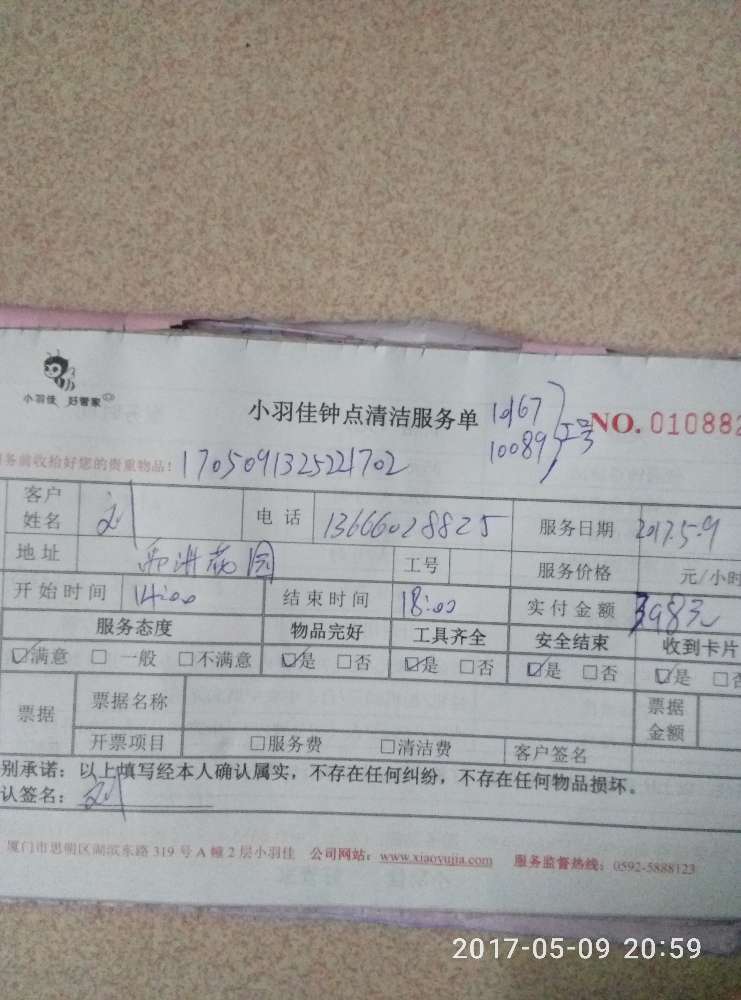 小羽佳 好管家
小羽佳钟点清洁服务单 10167 10089 工号 NO. 010882
务前收拾好您的贵重物品： 17050913252 4702
客户姓名 刘 电话 13666028825 服务日期 2017.5.9
地址 花园 工号 服务价格 元/小时
开始时间 14:00 结束时间 18:00 实付金额 398元
服务态度 物品完好 工具齐全 安全结束 收到卡片
☑满意 □一般 □不满意 ☑是 □否 ☑是 □否 ☑是 □否 ☑是 □否
票据 票据名称 票据金额
开票项目 □服务费 □清洁费 客户签名
别承诺：以上填写经本人确认属实，不存在任何纠纷，不存在任何物品损坏。
认签名： 刘
厦门市思明区湖滨东路 319 号 A 幢 2 层小羽佳 公司网站：www.xiaoyujia.com 服务监督热线：0592-5888123
2017-05-09 20:59